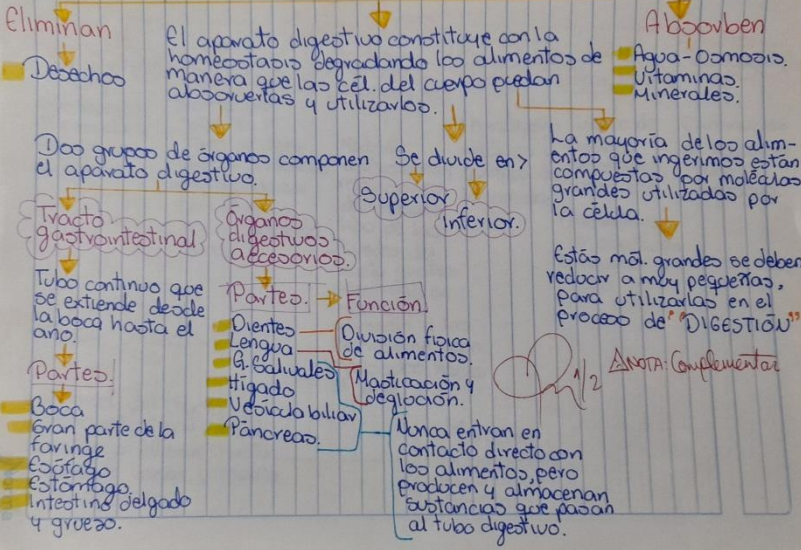 Eliminan
Desechos
El aparato digestivo constituye con la
homeostasis degradando los alimentos de
manera que las cél. del cuerpo puedan
absorverlas y utilizarlos.
Absorben
Agua-Osmosis.
Vitaminas.
Minerales.
Dos grupos de órganos componen
el aparato digestivo.
Se divide en>
Superior
Inferior.
La mayoría de los alim-
entos que ingerimos están
compuestas por moléculas
grandes utilizadas por
la célula.
Estás mol. grandes se deben
reducir a muy pequeñas,
para utilizarlas en el
proceso de "DIGESTIÓN"
Tracto
gastrointestinal
Tubo continuo que
se extiende desde
la boca hasta el
ano.
Partes.
Boca
Gran parte de la
faringe
Esófago
Estómago
Intestino delgado
y grueso.
Órganos
digestivos
accesorios.
Partes.
Función
Dientes
Lengua
G. Salivales
Hígado
Vesícula biliar
Páncreas.
División física
de alimentos.
Masticación y
deglución.
Nunca entran en
contacto directo con
los alimentos, pero
producen y almacenan
sustancias que pasan
al tubo digestivo.
1/2
NOTA: Complementar